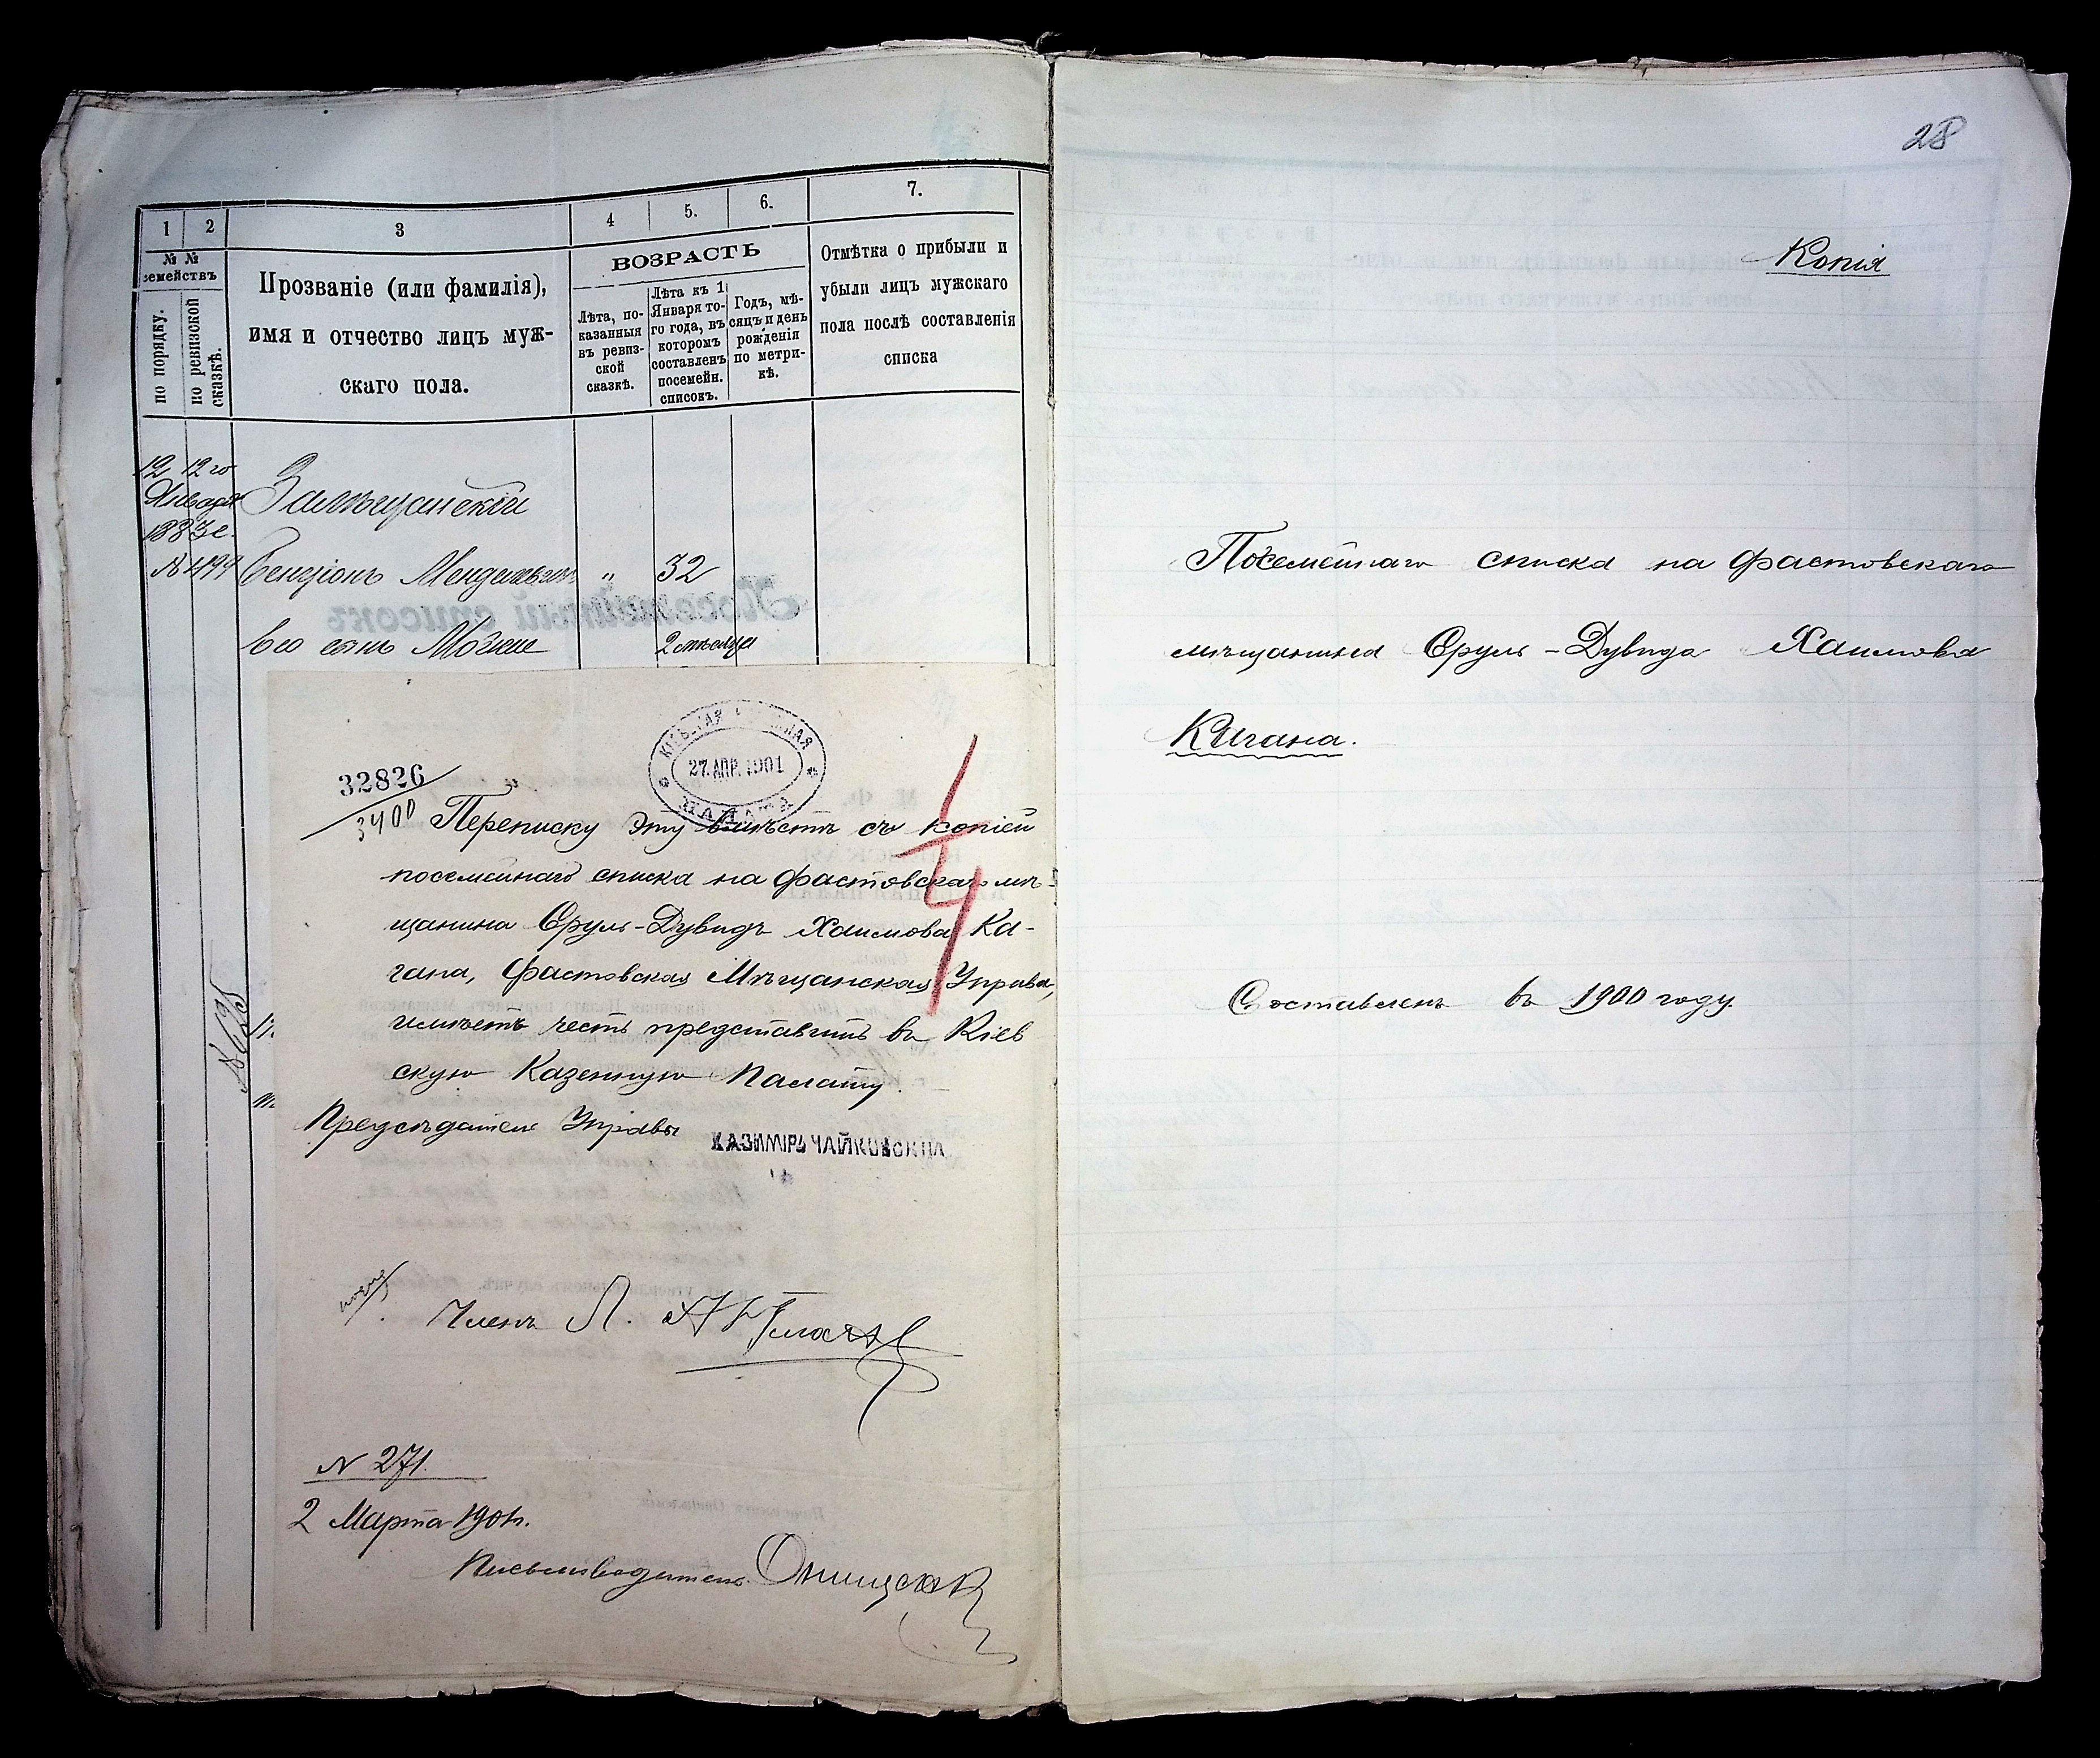 1 2 3 4 5. 6. 7.
№ №
семействъ
по порядку.
по ревизской
сказкѣ.
Прозваніе (или фамилія),
имя и отчество лицъ муж-
скаго пола.
ВОЗРАСТЪ
Лѣта, по-
казанныя
въ ревиз-
ской
сказкѣ.
Лѣта къ 1
Января то-
го года, въ
которомъ
составленъ
посемейн.
списокъ.
Годъ, мѣ-
сяцъ и день
рожденія
по метри-
кѣ.
Отмѣтка о прибыли и
убыли лицъ мужскаго
пола послѣ составленія
списка
12 12 го
Января
1883 г.
Бенціонъ " 32
Его сынъ Мошко 2 мѣсяца
27 АПР. 1901
ПАЛАТА
32826
3400
1/4
Переписку эту вмѣстѣ съ копіей
посемейнаго списка на фастовскаго мѣ-
щанина Сруль-Дувидъ Хаимова Ка-
гана, Фастовская Мѣщанская Управа,
имѣетъ честь представить въ Кіев
скую Казенную Палату.
Предсѣдатель Управы КАЗИМІРЪ
Членъ Л.
N 271.
2 Марта 1901 г.
Письмоводитель
28
Копія
Посемейнаго списка на фастовскаго
мѣщанина Сруль-Дувида Хаимова
Кагана.
Составленъ въ 1900 году.